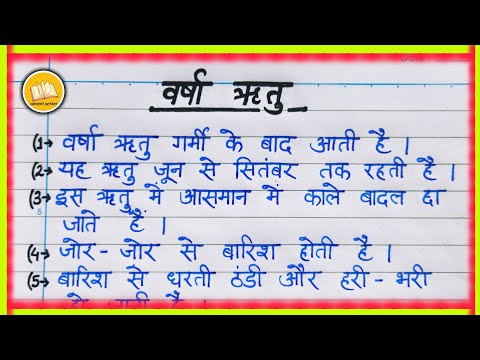 content writer
वर्षा ऋतु
(1→ वर्षा ऋतु गर्मी के बाद आती है ।
(2→ यह ऋतु जून से सितंबर तक रहती है ।
(3→ इस ऋतु में आसमान में काले बादल छा
जाते हैं ।
(4→ जोर - जोर से बारिश होती है ।
(5→ बारिश से धरती ठंडी और हरी - भरी